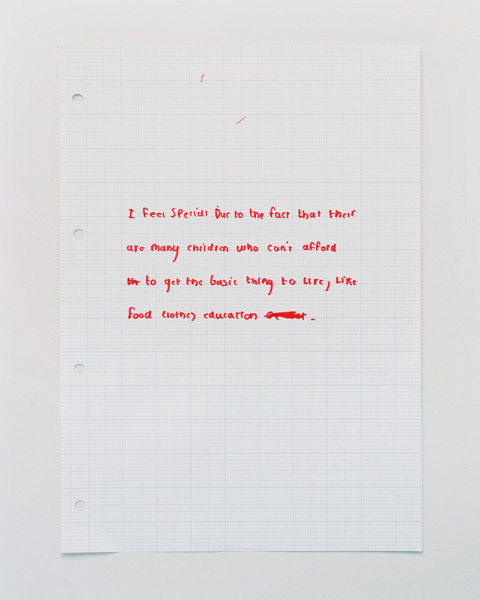 I Feel Special Due to the fact that their
are many children who can't afford
to get the basic thing to live, like
food clothes education .